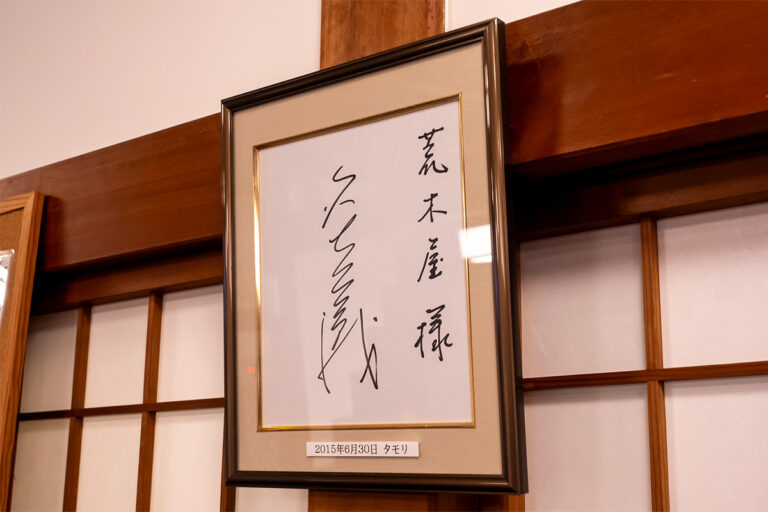 荒木屋様
2015年6月30日 タモリ